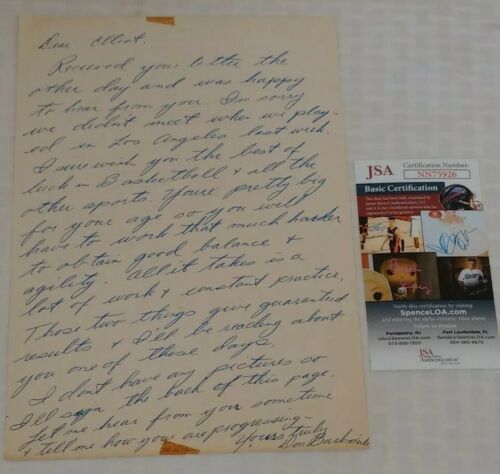 Dear Elliot,
Received your letter the
other day and was happy
to hear from you. I'm sorry
we didn't meet when we play-
ed in Los Angeles last week.
I sure wish you the best of
luck in Basketball & all the
other sports. You're pretty big
for your age so you will
have to work that much harder
to obtain good balance &
agility. All it takes is a
lot of work & constant practice.
Those two things give guaranteed
results & I'll be reading about
you one of these days.
I don't have any pictures so
I'll sign the back of this page.
Let me hear from you sometime
& tell me how you are progressing-
Yours truly
Don Barksdale
JSA
Certification Number:
NN75926
Basic Certification
Verify this certification by visiting
SpenceLOA.com
Follow us
Parsippany, NJ
Fort Lauderdale, FL
JSA
Authentication